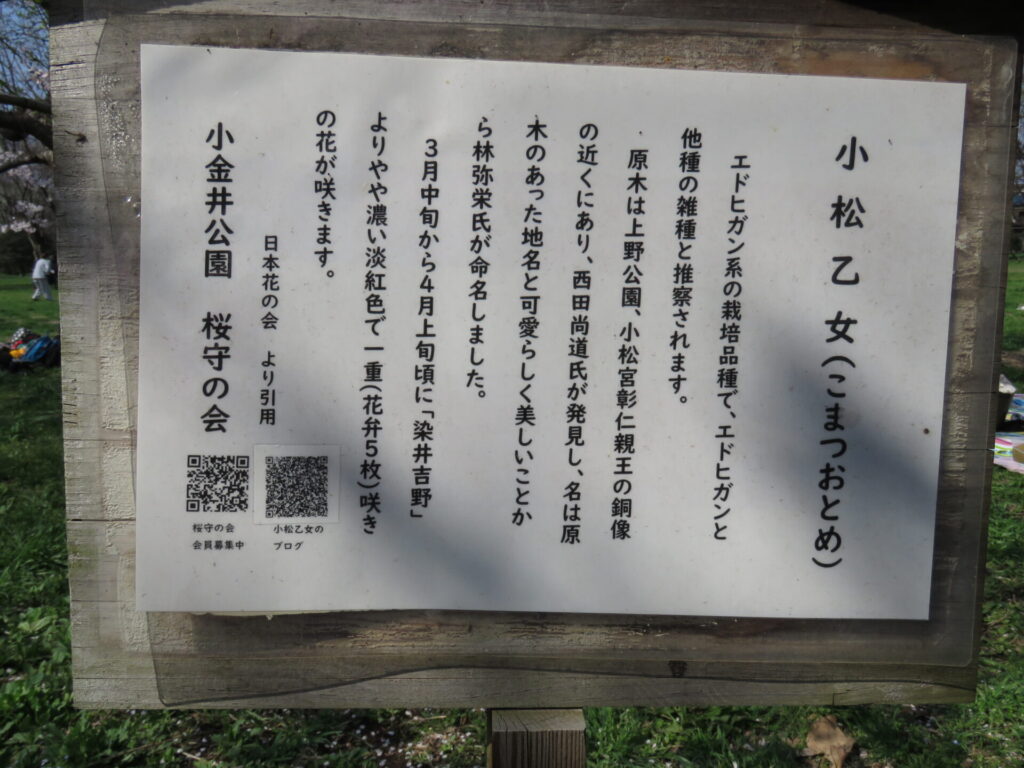 小松乙女(こまつおとめ)
エドヒガン系の栽培品種で、エドヒガンと
他種の雑種と推察されます。
原木は上野公園、小松宮彰仁親王の銅像
の近くにあり、西田尚道氏が発見し、名は原
木のあった地名と可愛らしく美しいことか
ら林弥栄氏が命名しました。
3月中旬から4月上旬頃に「染井吉野」
よりやや濃い淡紅色で一重(花弁5枚)咲き
の花が咲きます。
日本花の会 より引用
小金井公園 桜守の会
小松乙女の
ブログ
桜守の会
会員募集中